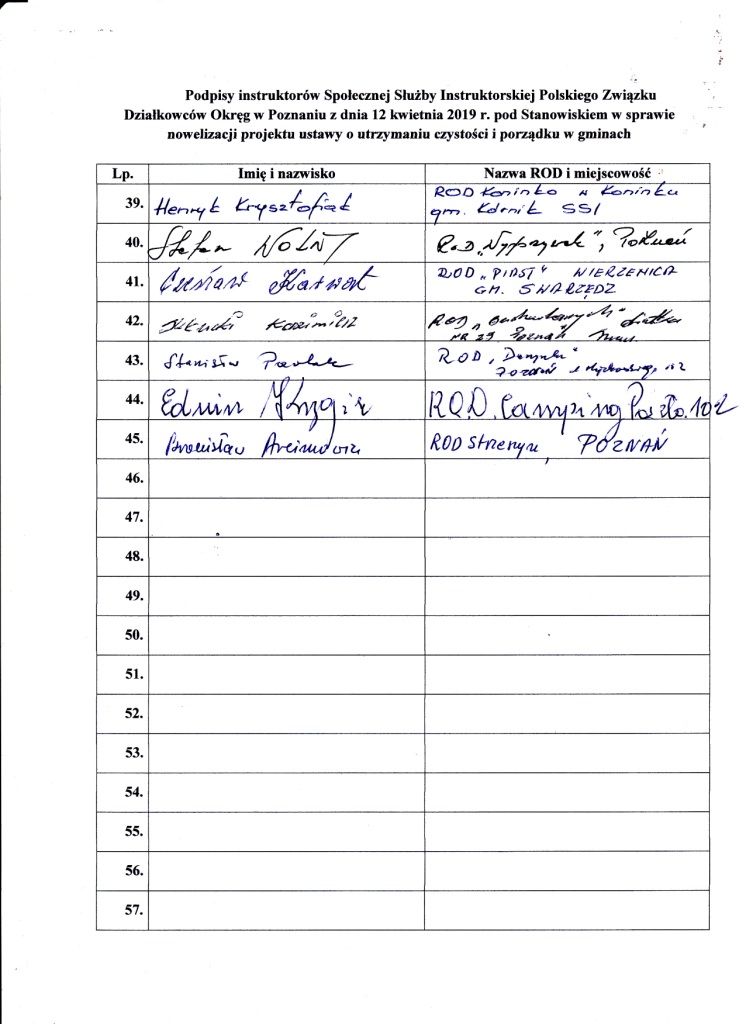 Podpisy instruktorów Społecznej Służby Instruktorskiej Polskiego Związku
Działkowców Okręg w Poznaniu z dnia 12 kwietnia 2019 r. pod Stanowiskiem w sprawie
nowelizacji projektu ustawy o utrzymaniu czystości i porządku w gminach
Lp. Imię i nazwisko Nazwa ROD i miejscowość
39. Henryk Krysztofiak ROD Koninko w Koninku
gm. Kórnik SSI
40. Stefan NOLNY ROD
41. Czesław ROD „PIAST" WIERZENICA
GM. SWARZĘDZ
42. Kazimierz ROD
NR 29 Poznań
43. Stanisław Pawlak ROD
44. Edwin R.O.D. Camping 102
45. Bronisław ROD Strzeszyn, POZNAŃ
46.
47.
48.
49.
50.
51.
52.
53.
54.
55.
56.
57.